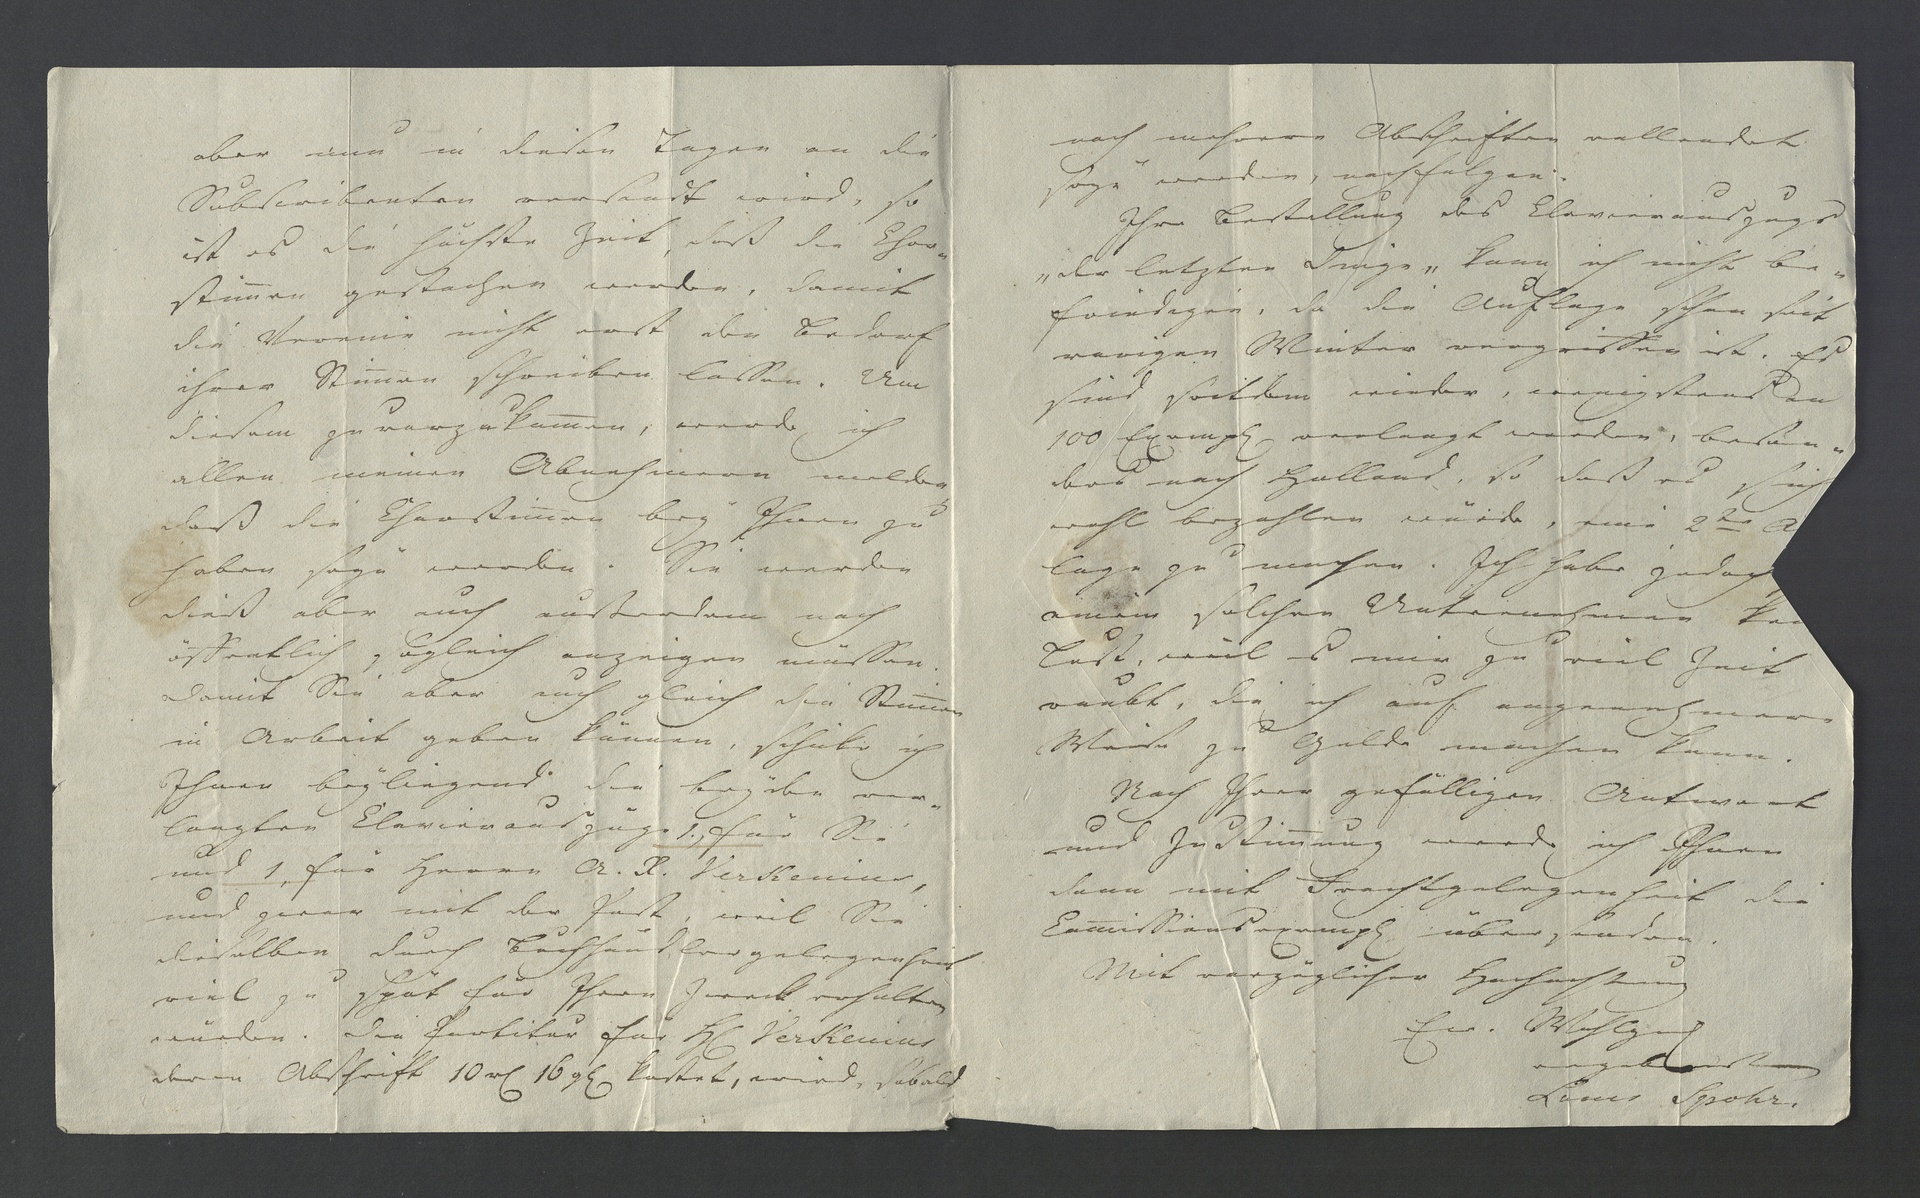 aber nun in diesen Tagen an die
Subscribenten versandt wird, so
ist es die höchste Zeit, daß die Chor-
stimmen gestochen werden, damit
die Vereine nicht erst den Bedarf
ihrer Stimmen schreiben lassen. Um
diesem zuvorzukommen, werde ich
allen meinen Abnehmern melden,
daß die Chorstimmen bey Ihnen zu
haben seyn werden. Sie werden
dieß aber auch ausserdem noch
öffentlich sogleich anzeigen müssen.
Damit Sie aber auch gleich die Stimmen
in Arbeit geben können, schicke ich
Ihnen beyliegend die beyden ver-
langten Clavierauszüge 1, für Sie
und 1, für Herrn A. R. Verkenius,
und zwar mit der Post, weil Sie
dieselben durch Buchhändlergelegenheit
viel zu spät für Ihren Zweck erhalten
würden. Die Partitur für H. Verkenius
deren Abschrift 10 rl 16 gl kostet, wird, sobald
noch mehrere Abschriften vollendet
seyn werden, nachfolgen.
Ihre Bestellung des Clavierauszugs
„der letzten Dinge" kann ich nicht be-
friedigen, da die Auflage schon seit
vorigen Winter vergriffen ist. Es
sind seitdem wieder, wenigstens an
100 Exempl verlangt worden, beson-
ders nach Holland, so daß es sich
wohl bezahlen würde, eine 2te A
lage zu machen. Ich habe jedoch
einem solchen Unternehmen kei
Lust, weil es mir zu viel Zeit
raubt, die ich auf angenehmere
Weise zu Gelde machen kann.
Nach Ihrer gefälligen Antwort
und Zustimmung werde ich Ihnen
dann mit Frachtgelegenheit die
Commissionsexempl. übersenden.
Mit vorzüglicher Hochachtung
Ew. Wohlgeb
ergebenster
Louis Spohr.